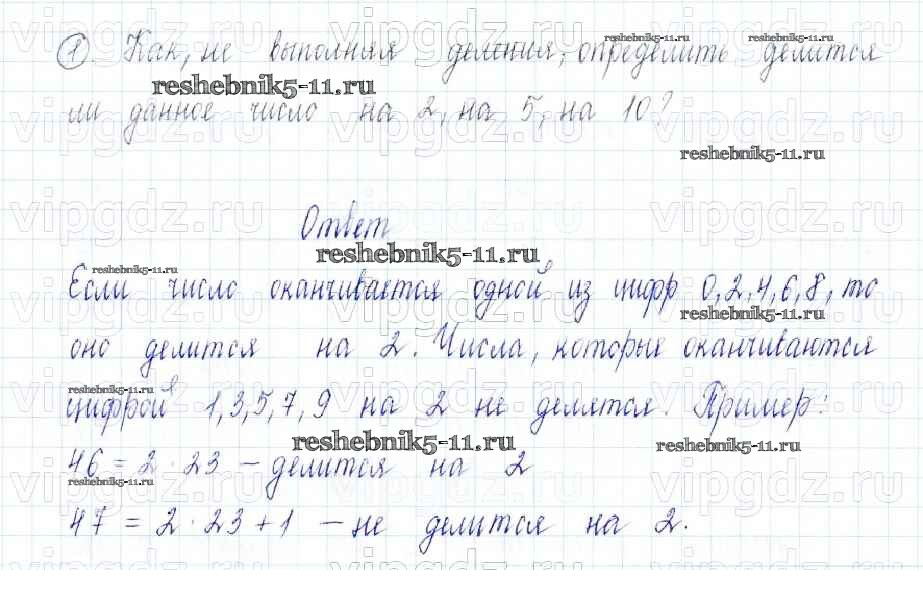 1. Как, не выполняя деления, определить делится
ли данное число на 2, на 5, на 10?
Ответ
Если число оканчивается одной из цифр 0, 2, 4, 6, 8, то
оно делится на 2. Числа, которые оканчиваются
цифрой 1, 3, 5, 7, 9 на 2 не делятся. Пример:
46 = 2 · 23 – делится на 2
47 = 2 · 23 + 1 – не делится на 2.
reshebnik5-11.ru
vipgdz.ru